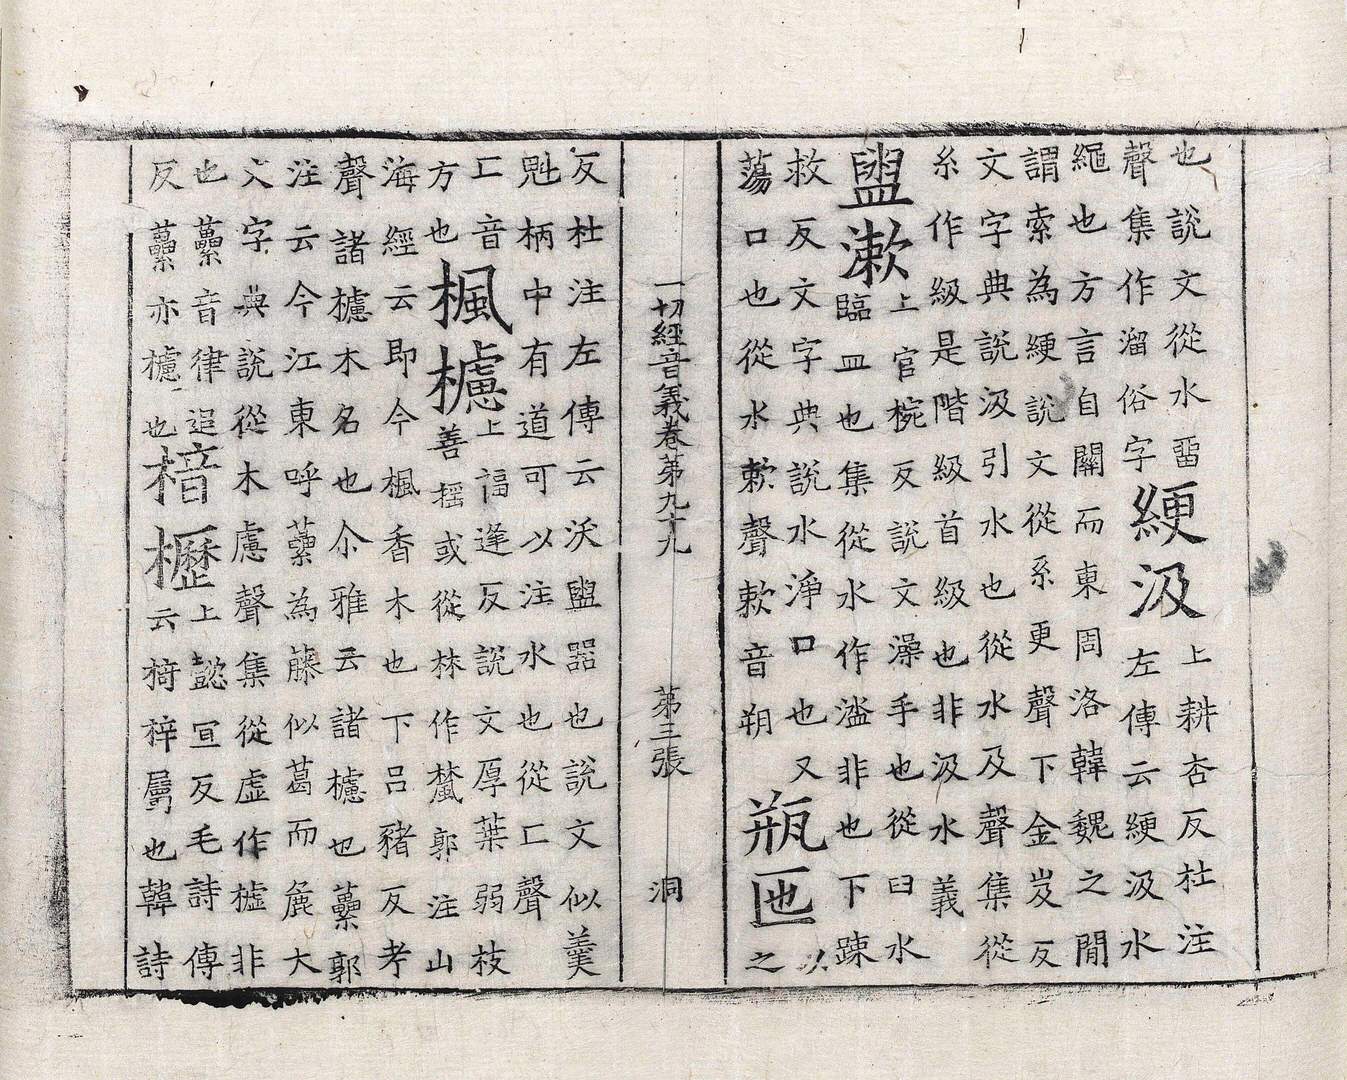 也說文從水畱
聲集作溜俗字綆汲上耕杏反杜注
左傳云綆汲水
繩也方言自關而東周洛韓魏之閒
謂索為綆說文從系更聲下金岌反
文字典說汲引水也從水及聲集從
糸作級是階級首級也非汲水義
盥漱上官椀反說文澡手也從臼水
臨皿也集從水作灆非也下踈
救反文字典說水淨口也又
蕩口也從水欶聲欶音朔
瓶匜以之
一切經音義卷苐九十九 苐三張 洞
反杜注左傳云沃盥器也說文似羹
魁柄中有道可以注水也從匚聲
匚音方也楓櫖上福逢反說文厚葉弱枝
善搖或從林作檒郭注山
海經云即今楓香木也下吕豬反考
聲諸櫖木名也尒雅云諸櫖也虆郭
注云今江東呼虆為藤似葛而麁大
文字典說從木慮聲集從虛作樝非
也虆音律追反虆亦櫖也
楮櫪上懿宣反毛詩傳
云椅梓屬也韓詩